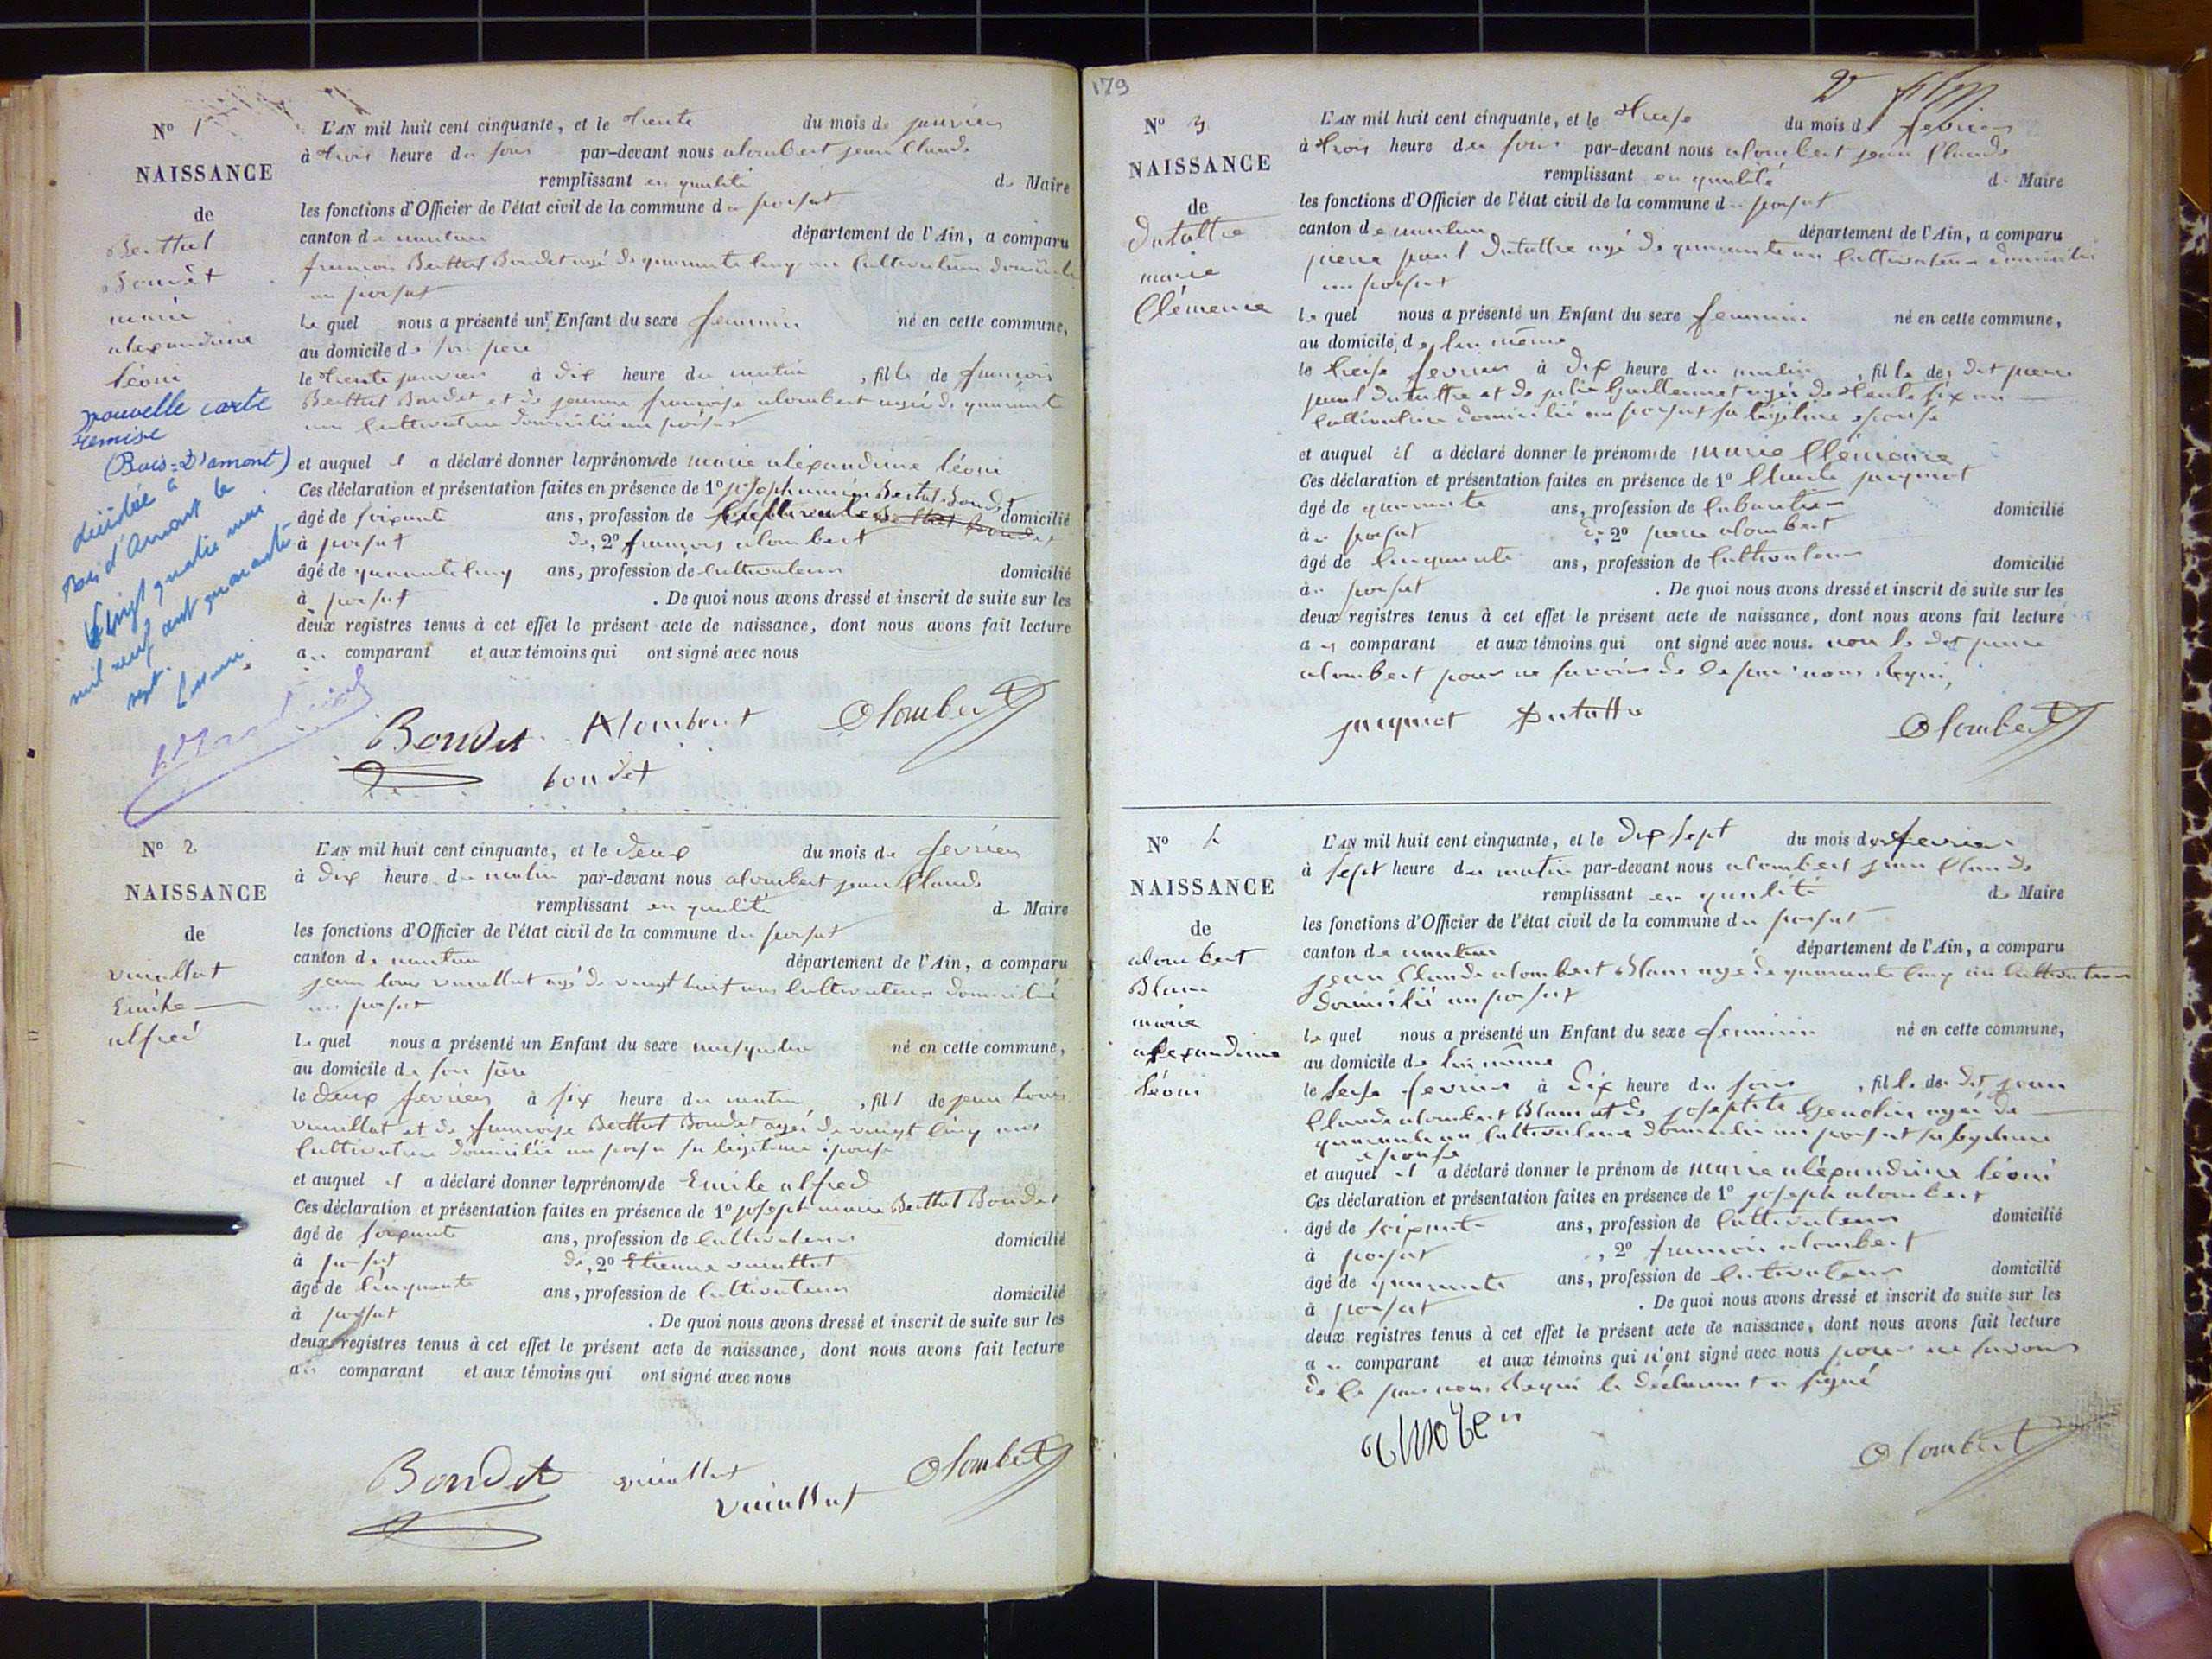 N° 1
NAISSANCE
de
Berthet
Boudet
marie
alexandrine
léoni
nouvelle carte
remise
(Bois-d'amont)
décédée à
Bois d'Amont le
Vingt quatre mai
mil neuf cent quarante
sept.
L'AN mil huit cent cinquante, et le trente du mois de janvier
à trois heure du soir par-devant nous alombert jean Claude
remplissant en qualité de Maire
les fonctions d'Officier de l'état civil de la commune du poisat
canton de nantua département de l'Ain, a comparu
françois Berthet Boudet agé de quarante cinq ans Cultivateur domicilié
au poisat
le quel nous a présenté un Enfant du sexe feminin né en cette commune,
au domicile de son pere
le trente janvier à dix heure du matin, fille de françois
Berthet Boudet et de jeanne françoise alombert agée de quarante
ans Cultivatrice domicilié au poisat
et auquel il a déclaré donner les prénoms de marie aléxandrine léoni
Ces déclaration et présentation faites en présence de 1° joseph marie Berthet Boudet
âgé de soixante ans, profession de Cultivateur domicilié
à poisat de, 2° françois alombert
âgé de quarante cinq ans, profession de Cultivateur domicilié
à poisat . De quoi nous avons dressé et inscrit de suite sur les
deux registres tenus à cet effet le présent acte de naissance, dont nous avons fait lecture
au comparant et aux témoins qui ont signé avec nous
Boudet Alombert Alombert
boudet
N° 2
NAISSANCE
de
vuaillat
Emile
alfred
L'AN mil huit cent cinquante, et le deux du mois de fevrier
à dix heure du matin par-devant nous alombert jean Claude
remplissant en qualité de Maire
les fonctions d'Officier de l'état civil de la commune du poisat
canton de nantua département de l'Ain, a comparu
jean louis vuaillat agé de vingt huit ans Cultivateur domicilié
au poisat
le quel nous a présenté un Enfant du sexe masqulin né en cette commune,
au domicile de son père
le deux fevrier à six heure du matin, fils de jean louis
vuaillat et de françoise Berthet Boudet agée de vingt cinq ans
Cultivatrice domicilié au poisa sa légitime épouse
et auquel il a déclaré donner les prénoms de Emile alfred
Ces déclaration et présentation faites en présence de 1° joseph marie Berthet Boudet
âgé de soixante ans, profession de Cultivateur domicilié
à poisat de, 2° Etienne vuaillat
âgé de Cinquante ans, profession de Cultivateur domicilié
à poisat . De quoi nous avons dressé et inscrit de suite sur les
deux registres tenus à cet effet le présent acte de naissance, dont nous avons fait lecture
au comparant et aux témoins qui ont signé avec nous
Boudet vuaillat Alombert
vuaillat
179
2e film
N° 3
NAISSANCE
de
Dutattre
marie
Clémence
L'AN mil huit cent cinquante, et le treise du mois de fevrier
à trois heure du soir par-devant nous alombert jean Claude
remplissant en qualité de Maire
les fonctions d'Officier de l'état civil de la commune du poisat
canton de nantua département de l'Ain, a comparu
pierre paul Dutattre agé de quarante an Cultivateur domicilié
au poisat
le quel nous a présenté un Enfant du sexe feminin né en cette commune,
au domicile de lui même
le treise fevrier à dix heure du matin, fille des dit pierre
paul Dutattre et de julie Guillermet agée de trente six an
Cultivatrice domicilié au poisat sa légitime epouse
et auquel il a déclaré donner le prénom de marie Clémence
Ces déclaration et présentation faites en présence de 1° Claude jacquiot
âgé de quarante ans, profession de Cabaretier domicilié
au poisat et 2° pierre alombert
âgé de Cinquante ans, profession de Cultivateur domicilié
au poisat . De quoi nous avons dressé et inscrit de suite sur les
deux registres tenus à cet effet le présent acte de naissance, dont nous avons fait lecture
aux comparant et aux témoins qui ont signé avec nous. non le dit pierre
alombert pour ne savoir de ce par nous Requi,
jacquiot Dutattre Alombert
N° 4
NAISSANCE
de
alombert
Blanc
marie
alexandrine
léoni
L'AN mil huit cent cinquante, et le dix sept du mois de fevrier
à sept heure du matin par-devant nous alombert jean Claude
remplissant en qualité de Maire
les fonctions d'Officier de l'état civil de la commune du poisat
canton de nantua département de l'Ain, a comparu
jean Claude alombert Blanc agé de quarante cinq an Cultivateur
domicilié au poisat
le quel nous a présenté un Enfant du sexe feminin né en cette commune,
au domicile de lui même
le seise fevrier à dix heure du soir, fille des dit jean
Claude alombert Blanc et de josephte Genolin agée de
quarante an Cultivateur domicilié au poisat sa légitime
épouse
et auquel il a déclaré donner le prénom de marie aléxandrine léoni
Ces déclaration et présentation faites en présence de 1° joseph alombert
âgé de soixante ans, profession de Cultivateur domicilié
à poisat, 2° francois alombert
âgé de quarante ans, profession de Cultivateur domicilié
à poisat . De quoi nous avons dressé et inscrit de suite sur les
deux registres tenus à cet effet le présent acte de naissance, dont nous avons fait lecture
au comparant et aux témoins qui n'ont signé avec nous pour ne savoir
de ce par nous Requi le déclarant a signé
Alombert